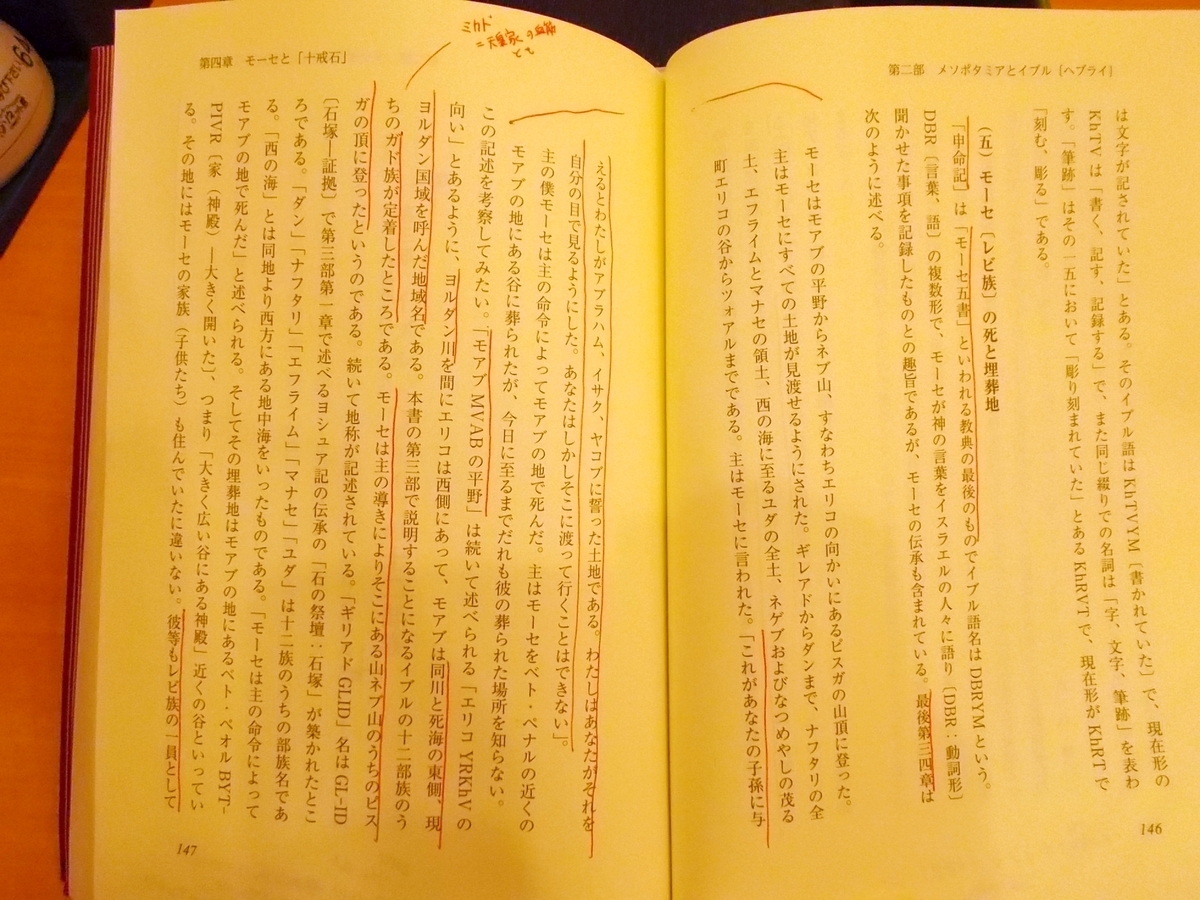 第二部　メソポタミアとイブル〔ヘブライ〕
は文字が記されていた」とある。そのイブル語は KhTVYM〔書かれていた〕で、現在形の
KhTV は「書く、記す、記録する」で、また同じ綴りでの名詞は「字、文字、筆跡」を表わ
す。「筆跡」はその一五において「彫り刻まれていた」とある KhRVT で、現在形が KhRT で
「刻む、彫る」である。
（五）モーセ〔レビ族〕の死と埋葬地
「申命記」は「モーセ五書」といわれる教典の最後のものでイブル語名は DBRYM という。
DBR〔言葉、語〕の複数形で、モーセが神の言葉をイスラエルの人々に語り〔DBR：動詞形〕
聞かせた事項を記録したものとの趣旨であるが、モーセの伝承も含まれている。最後第三四章は
次のように述べる。
モーセはモアブの平野からネブ山、すなわちエリコの向かいにあるピスガの山頂に登った。
主はモーセにすべての土地が見渡せるようにされた。ギレアドからダンまで、ナフタリの全
土、エフライムとマナセの領土、西の海に至るユダの全土、ネゲブおよびなつめやしの茂る
町エリコの谷からツォアルまでである。主はモーセに言われた。「これがあなたの子孫に与
146
第四章　モーセと「十戒石」
ミカド
＝天皇家の血筋
とも
えるとわたしがアブラハム、イサク、ヤコブに誓った土地である。わたしはあなたがそれを
自分の目で見るようにした。あなたはしかしそこに渡って行くことはできない」。
主の僕モーセは主の命令によってモアブの地で死んだ。主はモーセをベト・ペナルの近くの
モアブの地にある谷に葬られたが、今日に至るまでだれも彼の葬られた場所を知らない。
この記述を考察してみたい。「モアブ MVAB の平野」は続いて述べられる「エリコ YRKhV の
向い」とあるように、ヨルダン川を間にエリコは西側にあって、モアブは同川と死海の東側、現
ヨルダン国域を呼んだ地域名である。本書の第三部で説明することになるイブルの十二部族のう
ちのガド族が定着したところである。モーセは主の導きによりそこにある山ネブ山のうちのピス
ガの頂に登ったというのである。続いて地称が記述されている。「ギリアド GLID」名は GL-ID
〔石塚―証拠〕で第三部第一章で述べるヨシュア記の伝承の「石の祭壇：石塚」が築かれたとこ
ろである。「ダン」「ナフタリ」「エフライム」「マナセ」「ユダ」は十二族のうちの部族名であ
る。「西の海」とは同地より西方にある地中海をいったものである。「モーセは主の命令によって
モアブの地で死んだ」と述べられる。そしてその埋葬地はモアブの地にあるベト・ペオル BYT-
PIVR〔家（神殿）―大きく開いた〕、つまり「大きく広い谷にある神殿」近くの谷といってい
る。その地にはモーセの家族（子供たち）も住んでいたに違いない。彼等もレビ族の一員として
147